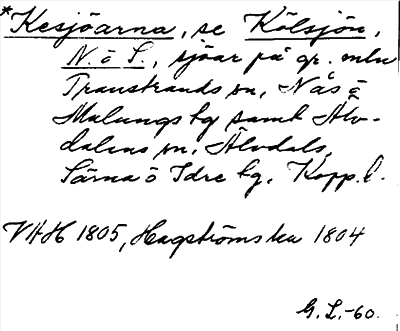 *Kesjöarna, se Kölsjön,
N. o S., sjöar på gr. mln
Transtrands sn, Näs o
Malungs tg samt Älv-
dalens sn, Älvdals,
Särna o Idre tg, Kopp.l.
VHH 1805, Hagströms ka 1804
G. L. -60.